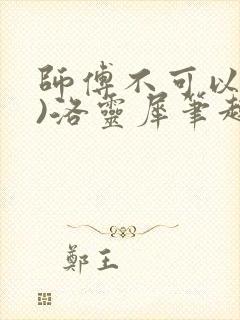 師傅不可以
)洛靈犀筆趣
鄭王